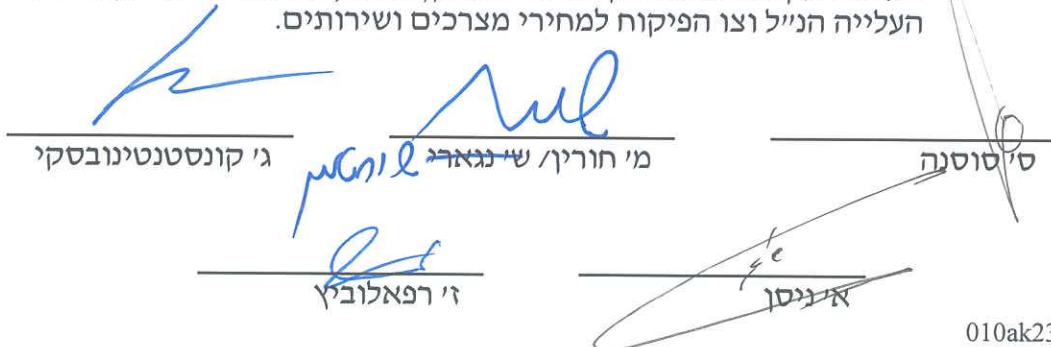 העלייה הנ״ל וצו הפיקוח למחירי מצרכים ושירותים.
ס׳ סוסנה
מ׳ חורין/ ש׳ נגארי
ג׳ קונסטנטינובסקי
א׳ ניסן
ז׳ רפאלוביץ
010ak23